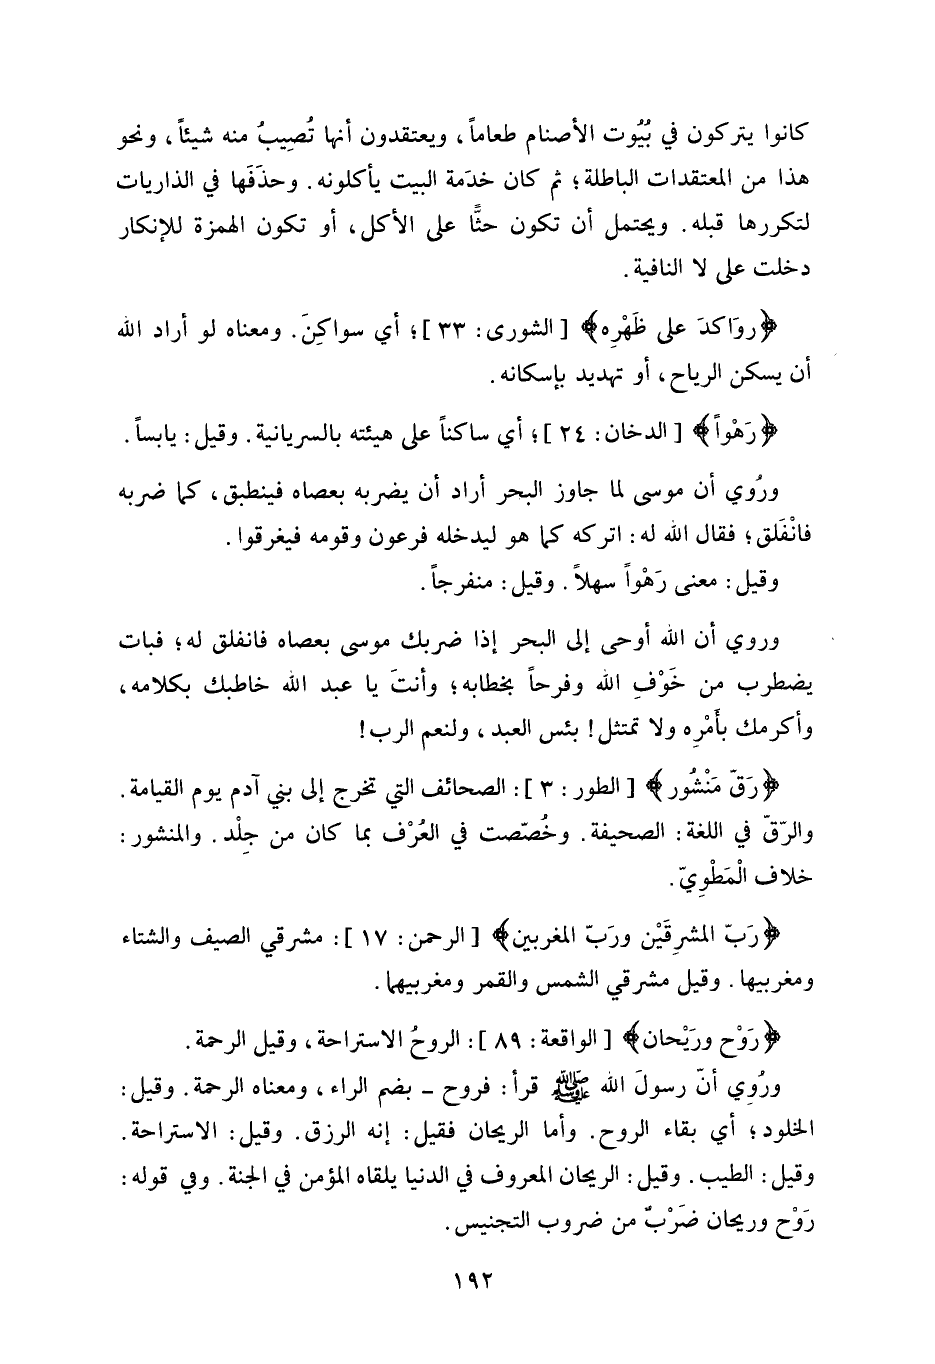 كانوا يتركون في بُيُوت الأصنام طعاماً، ويعتقدون أنها تُصِيبُ منه شيئاً، ونحو
هذا من المعتقدات الباطلة؛ ثم كان خدَمة البيت يأكلونه. وحذَفَها في الذاريات
لتكررها قبله. ويحتمل أن تكون حثًّا على الأكل، أو تكون الهمزة للإنكار
دخلت على لا النافية.
﴿روَاكدَ على ظَهْرِه﴾ [الشورى: ٣٣]؛ أي سواكِنَ. ومعناه لو أراد الله
أن يسكن الرياح، أو تهديد بإسكانه.
﴿رَهْواً﴾ [الدخان: ٢٤]؛ أي ساكناً على هيئته بالسريانية. وقيل: يابساً.
ورُوي أن موسى لما جاوز البحر أراد أن يضربه بعصاه فينطبق، كما ضربه
فانْفَلق؛ فقال الله له: اتركه كما هو ليدخله فرعون وقومه فيغرقوا.
وقيل: معنى رَهْواً سهلاً. وقيل: منفرجاً.
وروي أن الله أوحى إلى البحر إذا ضربك موسى بعصاه فانفلق له؛ فبات
يضطرب من خَوْفِ الله وفرحاً بخطابه؛ وأنتَ يا عبد الله خاطبك بكلامه،
وأكرمك بأَمْرِه ولا تمتثل! بئس العبد، ولنعم الرب!
﴿رَقّ مَنْشُور﴾ [الطور: ٣]: الصحائف التي تخرج إلى بني آدم يوم القيامة.
والرّقّ في اللغة: الصحيفة. وخُصّصت في العُرْف بما كان من جِلْد. والمنشور:
خلاف الْمَطْوِيّ.
﴿رَبّ المشرِقَيْن وربّ المغربين﴾ [الرحمن: ١٧]: مشرقي الصيف والشتاء
ومغربيها. وقيل مشرقي الشمس والقمر ومغربيهما.
﴿رَوْح ورَيْحان﴾ [الواقعة: ٨٩]: الروحُ الاستراحة، وقيل الرحمة.
ورُوِي أنّ رسولَ الله ﷺ قرأ: فروح - بضم الراء، ومعناه الرحمة. وقيل:
الخلود؛ أي بقاء الروح. وأما الريحان فقيل: إنه الرزق. وقيل: الاستراحة.
وقيل: الطيب. وقيل: الريحان المعروف في الدنيا يلقاه المؤمن في الجنة. وفي قوله:
رَوْح وريحان ضَرْبٌ من ضروب التجنيس.
١٩٢